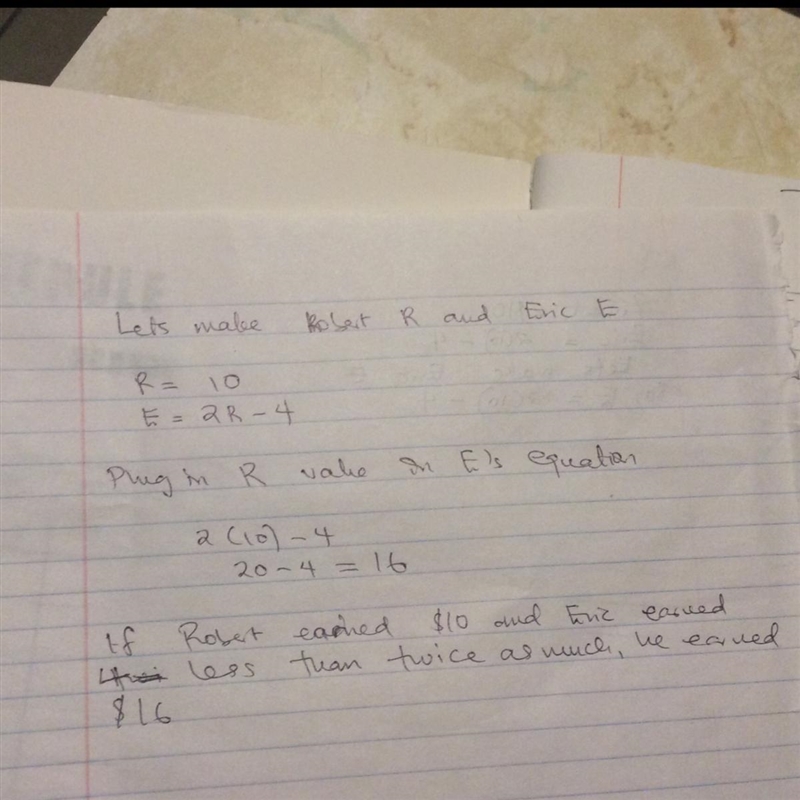 Lets make Robert R and Eric E
R = 10
E = 2R - 4
Plug in R value in E's equation
2 (10) - 4
20 - 4 = 16
If Robert earned $10 and Eric earned
less than twice as much, he earned
$16